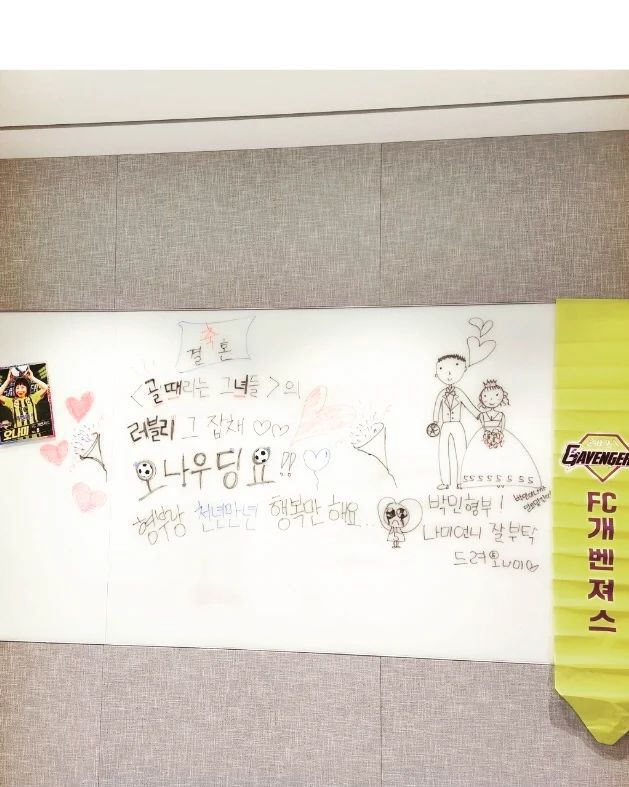 축
결혼
<골때리는 그녀들>의
러블리 그 잡채
오나우딩요!!
형부랑 천년만년 행복만 해요...
박민형부!
나미언니 잘부탁
드려요
오나미
GAVENGER
FC
개벤져스